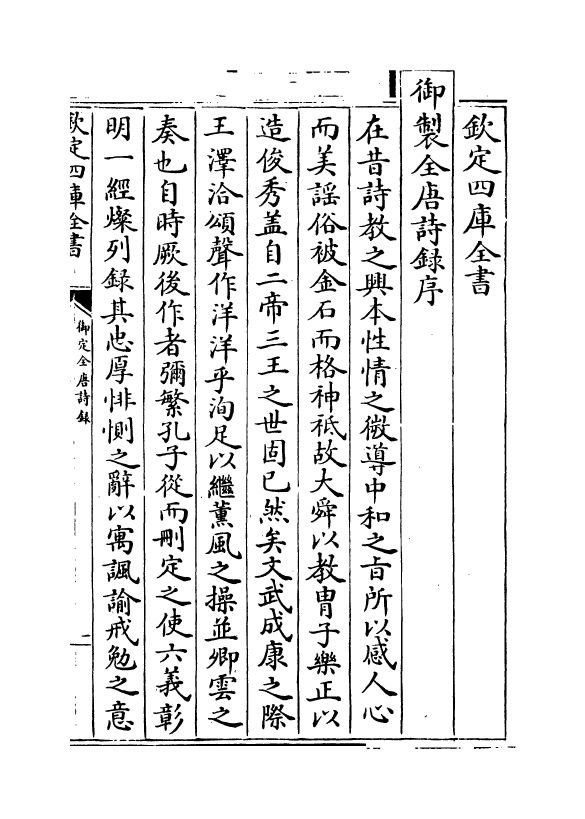 欽定四庫全書
御製全唐詩録序
在昔詩教之興本性情之微導中和之旨所以感人心
而美謡俗被金石而格神祇故大舜以教胄子樂正以
造俊秀蓋自二帝三王之世固已然矣文武成康之際
王澤洽頌聲作洋洋乎洵足以繼薰風之操並卿雲之
奏也自時厥後作者彌繁孔子從而刪定之使六義彰
明一經燦列録其忠厚悱惻之辭以寓諷諭戒勉之意
欽定四庫全書
御定全唐詩録